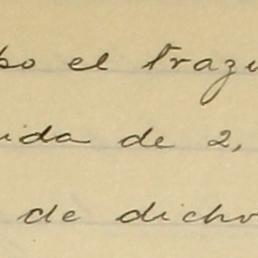 po el trazu
ida de 2,
de dicho